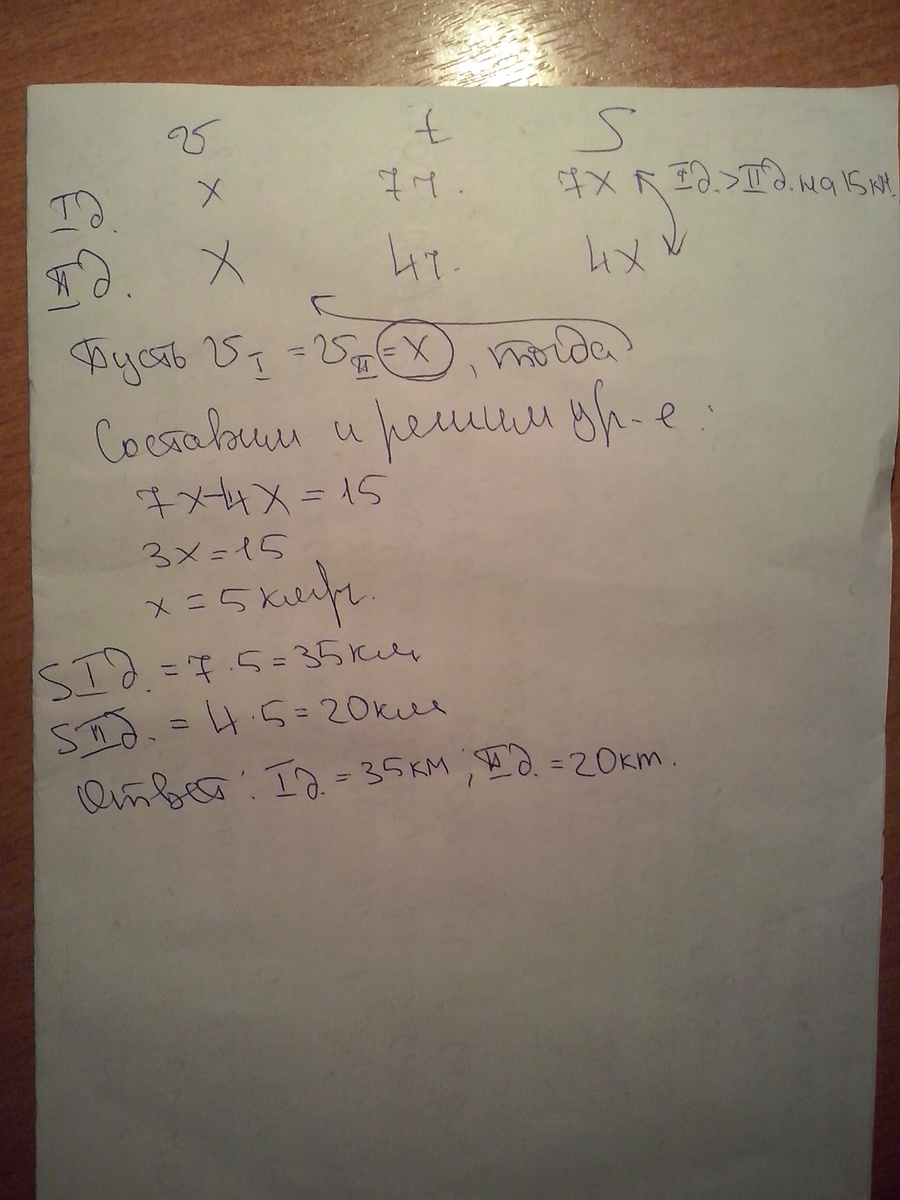 v t S
I д. x 7ч. 7x I д. > II д. на 15 км.
II д. x 4ч. 4x
Пусть v I = v II = x, тогда
Составим и решим ур-е:
7x-4x = 15
3x = 15
x = 5 км/ч.
S I д. = 7 · 5 = 35 км
S II д. = 4 · 5 = 20 км
Ответ: I д. = 35 км; II д. = 20 км.